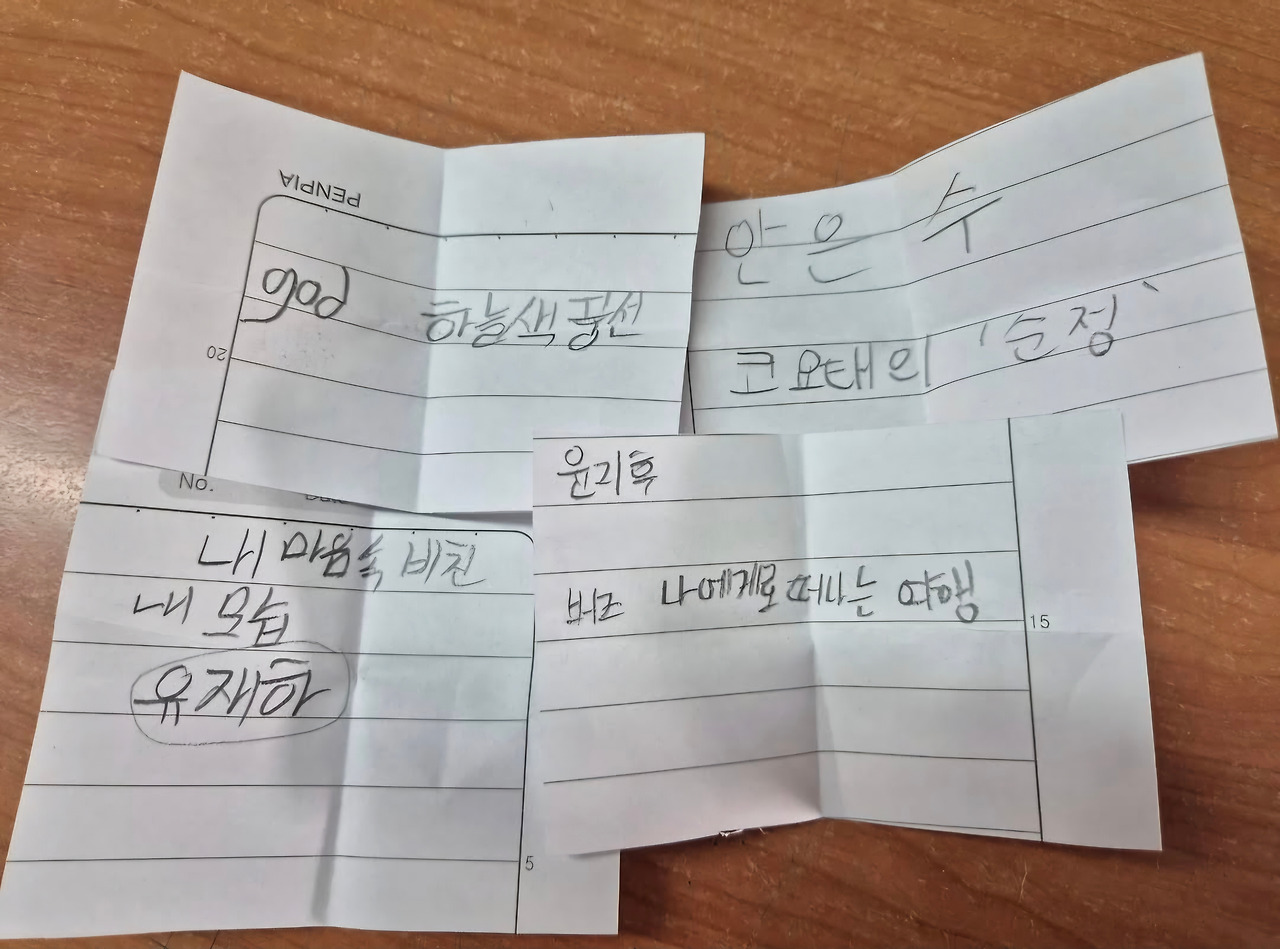 PENPIA
god 하늘색 풍선
20
안 은 수
코요태의 '순정'
No.
내 마음속 비친
내 모습
유재하
5
윤지후
버즈 나에게로 떠나는 여행
15